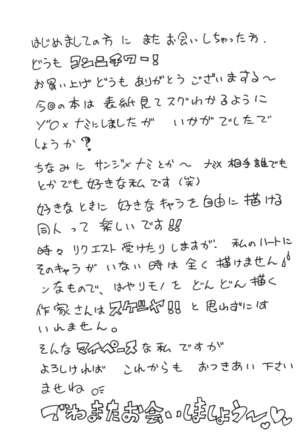 はじめましての方に またお会いしちゃった方、
どうも コンニチワー!
お買い上げどうも ありがとう ございまする〜
今回の本は 表紙見てスグわかるように
ゾロ×ナミにしましたが いかがでしたで
しょうか?
ちなみに サンジ×ナミとか〜 ナミ×相手誰でも
とかでも好きな私です(笑)
好きなときに 好きなキャラを自由に描ける
同人って 楽しいです!!
時々 リクエスト受けたりしますが、私のハートに
そのキャラが いない時は全く描けません
ンなもので、はやりモノを どんどん描く
作家さんは スゲーや!! と思わずには
いれません。
そんな マイペース な私 ですが
よろしければ これからも おつきあい下さい
ませね
でわまたお会いしましょう〜♡♡